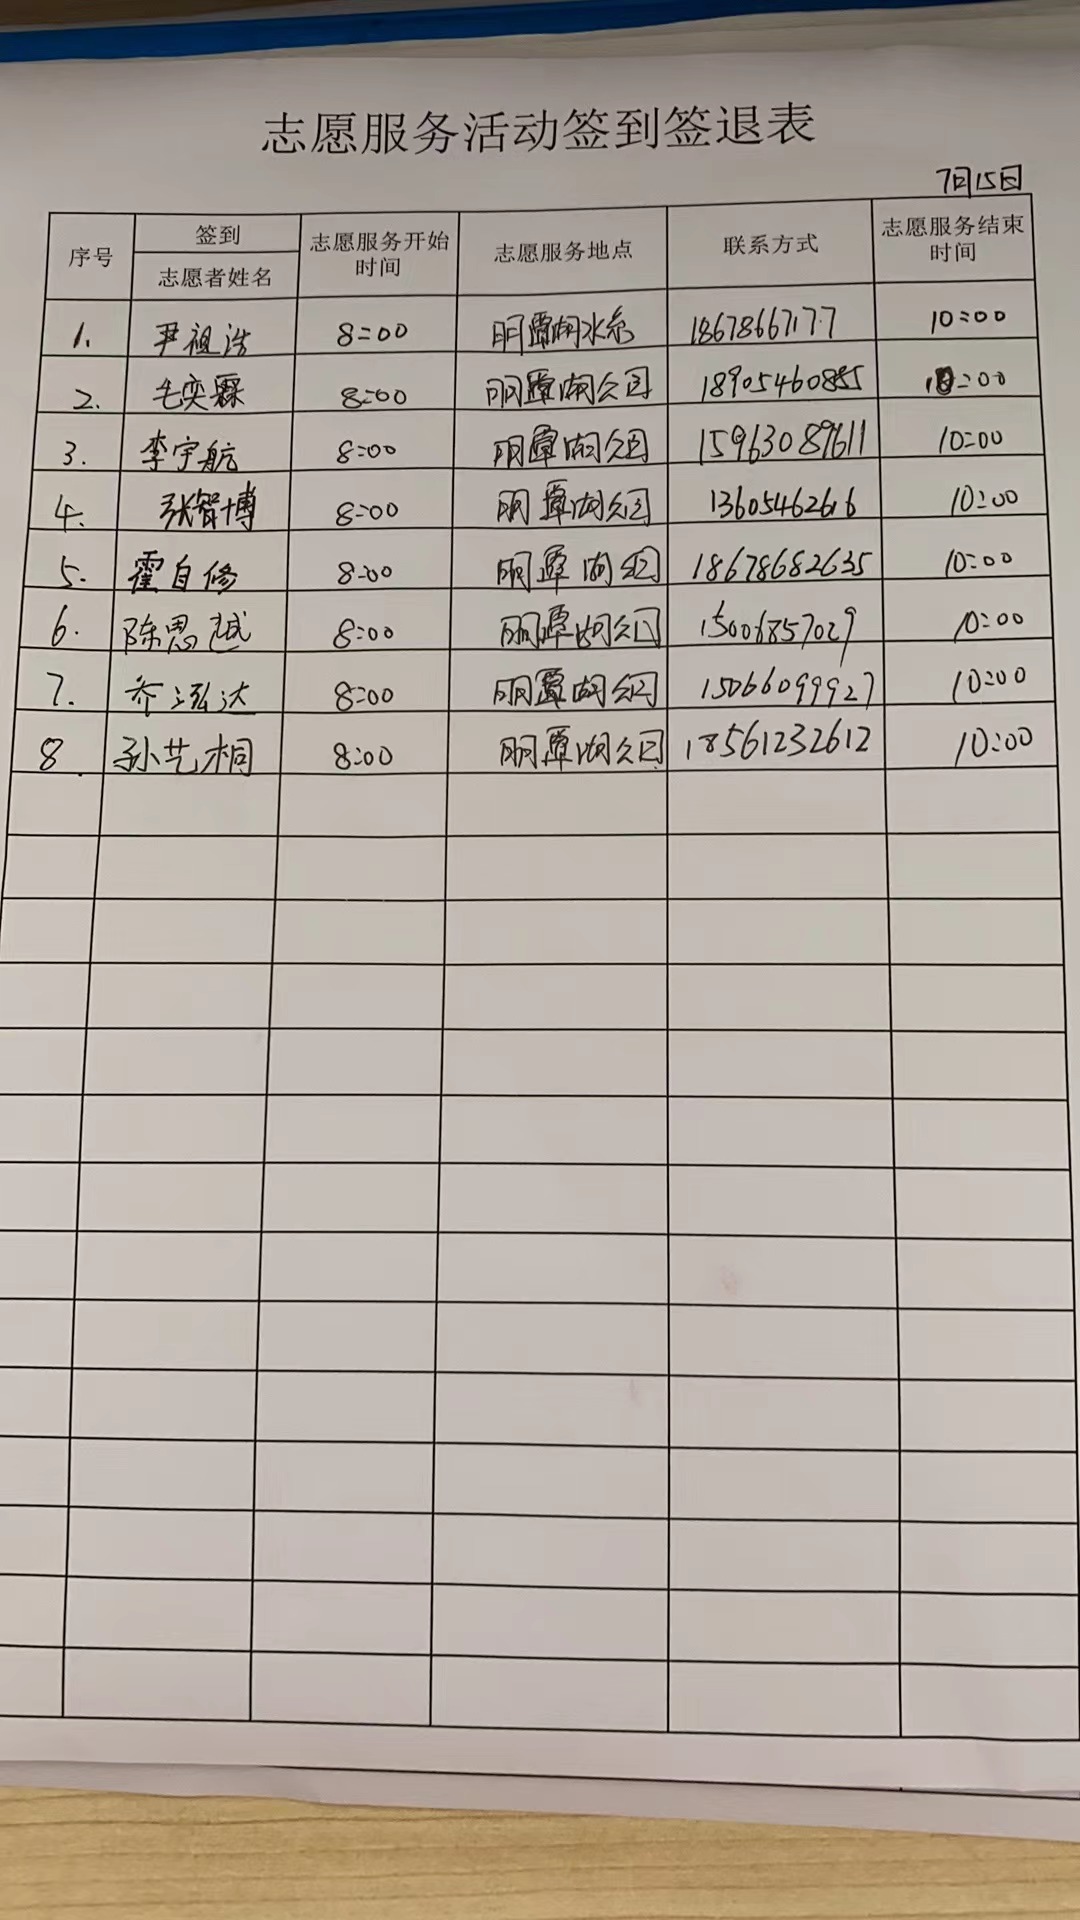 志愿服务活动签到签退表
7月15日
序号 签到 志愿者姓名 志愿服务开始时间 志愿服务地点 联系方式 志愿服务结束时间
1. 尹祖浩 8:00 明潭湖水系 18678667177 10:00
2. 毛奕霖 8:00 明潭湖公园 18905460885 10:00
3. 李宇航 8:00 明潭湖公园 15963089611 10:00
4. 张智博 8:00 明潭湖公园 13605462616 10:00
5. 霍自修 8:00 明潭湖公园 18678682635 10:00
6. 陈思越 8:00 明潭湖公园 15006857029 10:00
7. 乔泓达 8:00 明潭湖公园 15066099927 10:00
8 孙艺桐 8:00 明潭湖公园 18561232612 10:00